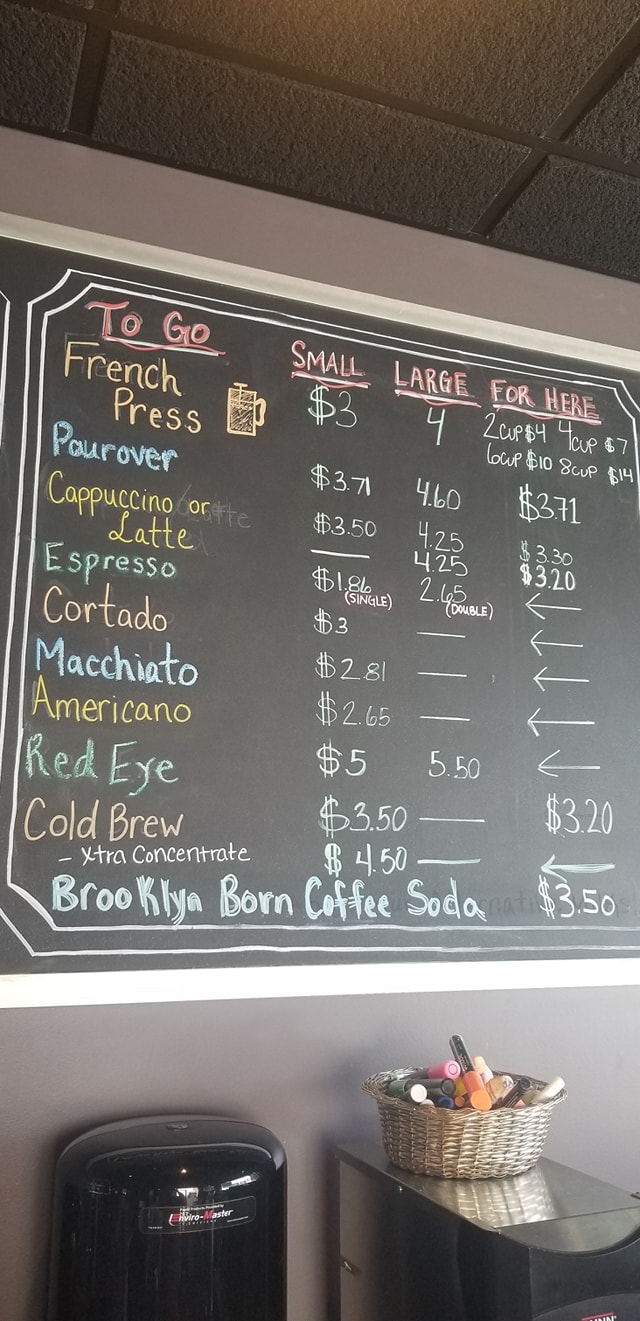 TO GO
SMALL LARGE FOR HERE
French Press $3 4 2cup $4 4cup $7
6cup $10 8cup $14
Pourover $3.71 4.60 $3.71
Cappuccino or $3.50 4.25 $3.30
Latte — 4.25 $3.20
Espresso $1.86 (SINGLE) 2.65 (DOUBLE) ←
Cortado $3 — ←
Macchiato $2.81 — ←
Americano $2.65 — ←
Red Eye $5 5.50 ←
Cold Brew $3.50 — $3.20
- Xtra Concentrate $4.50 — ←
Brooklyn Born Coffee Soda $3.50
Enviro-Master